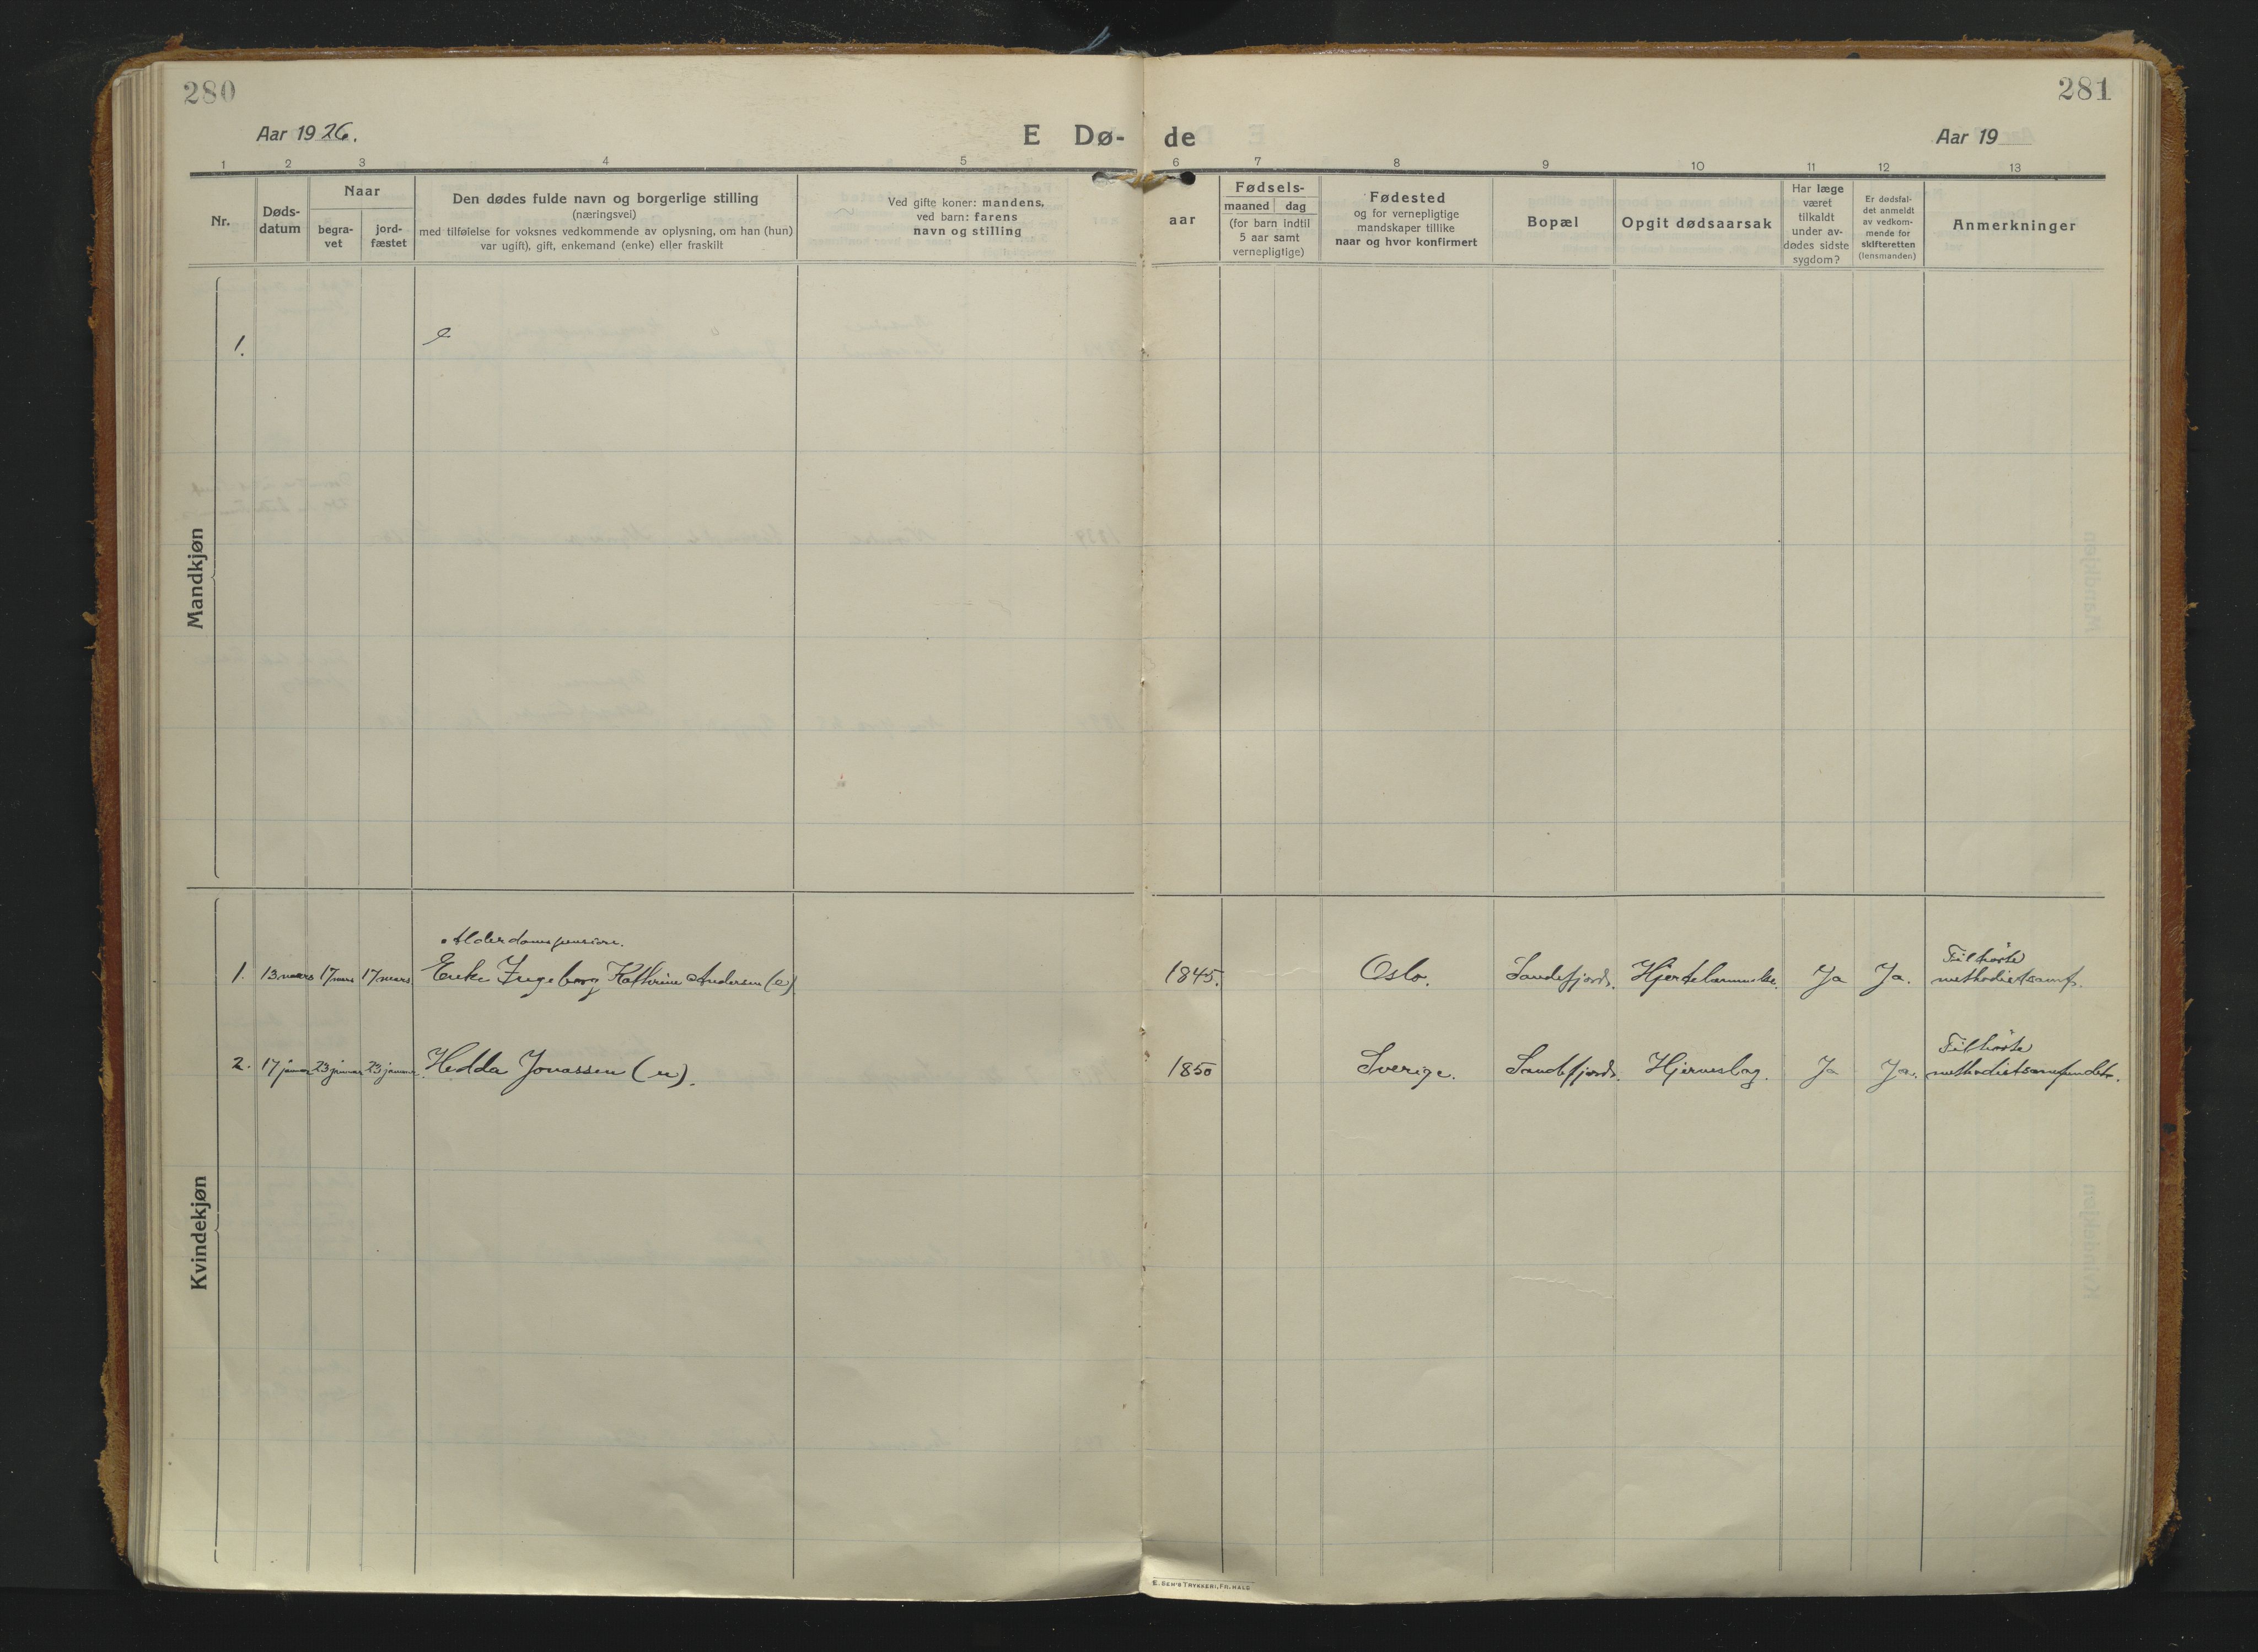 280
281
Aar 1926.
E Dø-
de
Aar 19
1 2 3 4 5 6 7 8 9 10 11 12 13
Nr.
Døds-
datum
Naar
begra-
vet
jord-
fæstet
Den dødes fulde navn og borgerlige stilling
(næringsvei)
med tilføielse for voksnes vedkommende av oplysning, om han (hun)
var ugift), gift, enkemand (enke) eller fraskilt
Ved gifte koner: mandens,
ved barn: farens
navn og stilling
aar
Fødsels-
maaned dag
(for barn indtil
5 aar samt
vernepligtige)
Fødested
og for vernepligtige
mandskaper tillike
naar og hvor konfirmert
Bopæl
Opgit dødsaarsak
Har læge
været
tilkaldt
under av-
dødes sidste
sygdom?
Er dødsfal-
det anmeldt
av vedkom-
mende for
skifteretten
(lensmanden)
Anmerkninger
Mandkjøn
1.
Kvindekjøn
Alderdomspension.
1. 13 mars 17 mars 17 mars Enke Ingeborg Kathrine Andersen (e) 1845. Oslo. Sandefjord. Hjertelammelse. Ja Ja. Tilhørte
methodistsamf.
2. 17 januar 23 januar 23 januar Hedda Jonassen (u). 1850 Sverige. Sandefjord. Hjerneslag. Ja Ja. Tilhørte
methodistsamfundet.
E. SEM'S TRYKKERI, FR.HALD